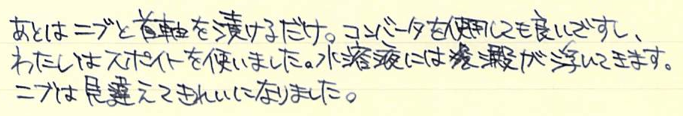 あとはニブと首軸を漬けるだけ。コンバータを使用しても良いですし、
わたしはスポイトを使いました。水溶液には沈澱が浮いてきます。
ニブは見違えてきれいになりました。